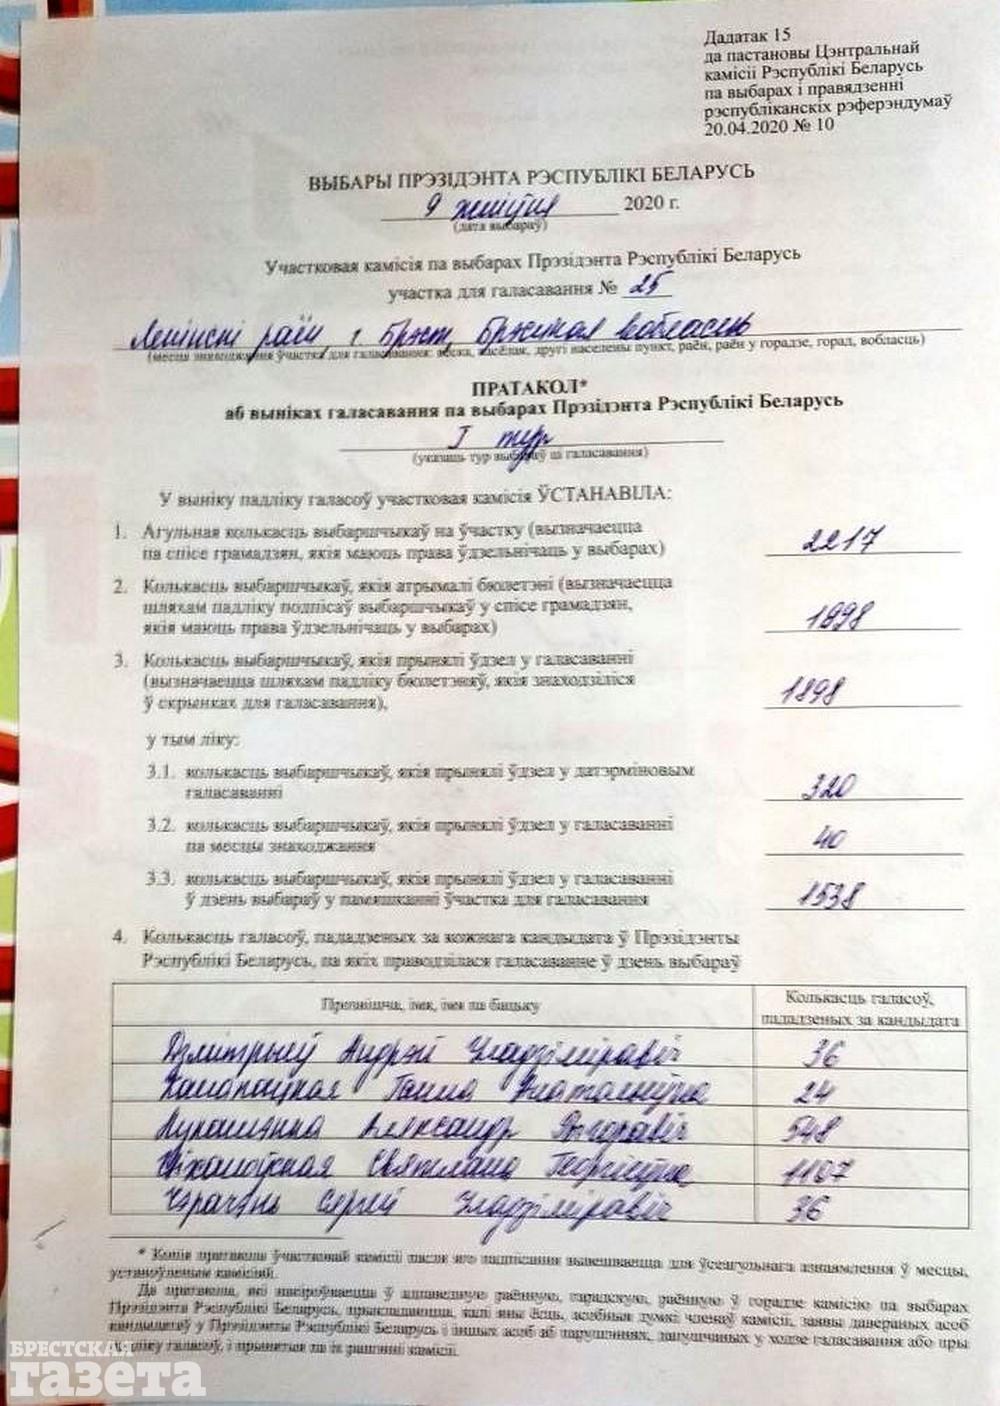 Дадатак 15
да пастановы Цэнтральнай
камісіі Рэспублікі Беларусь
па выбарах і правядзенні
рэспубліканскіх рэферэндумаў
20.04.2020 № 10
ВЫБАРЫ ПРЭЗІДЭНТА РЭСПУБЛІКІ БЕЛАРУСЬ
9 жніўня 2020 г.
(дата выбараў)
Участковая камісія па выбарах Прэзідэнта Рэспублікі Беларусь
участка для галасавання № 25
Ленінскі раён, г. Брэст, Брэсцкая вобласць
(месца знаходжання ўчастка для галасавання: вёска, пасёлак, другі населены пункт, раён, раён у горадзе, горад, вобласць)
ПРАТАКОЛ*
аб выніках галасавання па выбарах Прэзідэнта Рэспублікі Беларусь
I тур
(указаць тур выбараў ці галасавання)
У выніку падліку галасоў участковая камісія ЎСТАНАВІЛА:
1. Агульная колькасць выбаршчыкаў на ўчастку (вызначаецца
па спісе грамадзян, якія маюць права ўдзельнічаць у выбарах) 2217
2. Колькасць выбаршчыкаў, якія атрымалі бюлетэні (вызначаецца
шляхам падліку подпісаў выбаршчыкаў у спісе грамадзян,
якія маюць права ўдзельнічаць у выбарах) 1898
3. Колькасць выбаршчыкаў, якія прынялі ўдзел у галасаванні
(вызначаецца шляхам падліку бюлетэняў, якія знаходзіліся
ў скрынках для галасавання), 1898
у тым ліку:
3.1. колькасць выбаршчыкаў, якія прынялі ўдзел у датэрміновым
галасаванні 320
3.2. колькасць выбаршчыкаў, якія прынялі ўдзел у галасаванні
па месцы знаходжання 40
3.3. колькасць выбаршчыкаў, якія прынялі ўдзел у галасаванні
ў дзень выбараў у памяшканні ўчастка для галасавання 1538
4. Колькасць галасоў, пададзеных за кожнага кандыдата ў Прэзідэнты
Рэспублікі Беларусь, па якіх праводзілася галасаванне ў дзень выбараў
Прозвішча, імя, імя па бацьку
Колькасць галасоў,
пададзеных за кандыдата
Дзмітрыеў Андрэй Уладзіміравіч 36
Канапацкая Ганна Анатольеўна 24
Лукашэнка Аляксандр Рыгоравіч 548
Ціханоўская Святлана Георгіеўна 1107
Чэрачэнь Сергей Уладзіміравіч 36
* Копія пратакола ўчастковай камісіі пасля яго падпісання вывешваецца для ўсеагульнага азнаямлення ў месцы,
устаноўленым камісіяй.
Да пратакола, які накіроўваецца ў адпаведную раённую, гарадскую, раённую ў горадзе камісію па выбарах
Прэзідэнта Рэспублікі Беларусь, прыкладаюцца, калі яны ёсць, асобныя думкі членаў камісіі, заявы давераных асоб
кандыдатаў у Прэзідэнты Рэспублікі Беларусь і іншых асоб аб парушэннях, дапушчаных у ходзе галасавання або пры
падліку галасоў, і прынятыя па іх рашэнні камісіі.
БРЕСТСКАЯ
газета